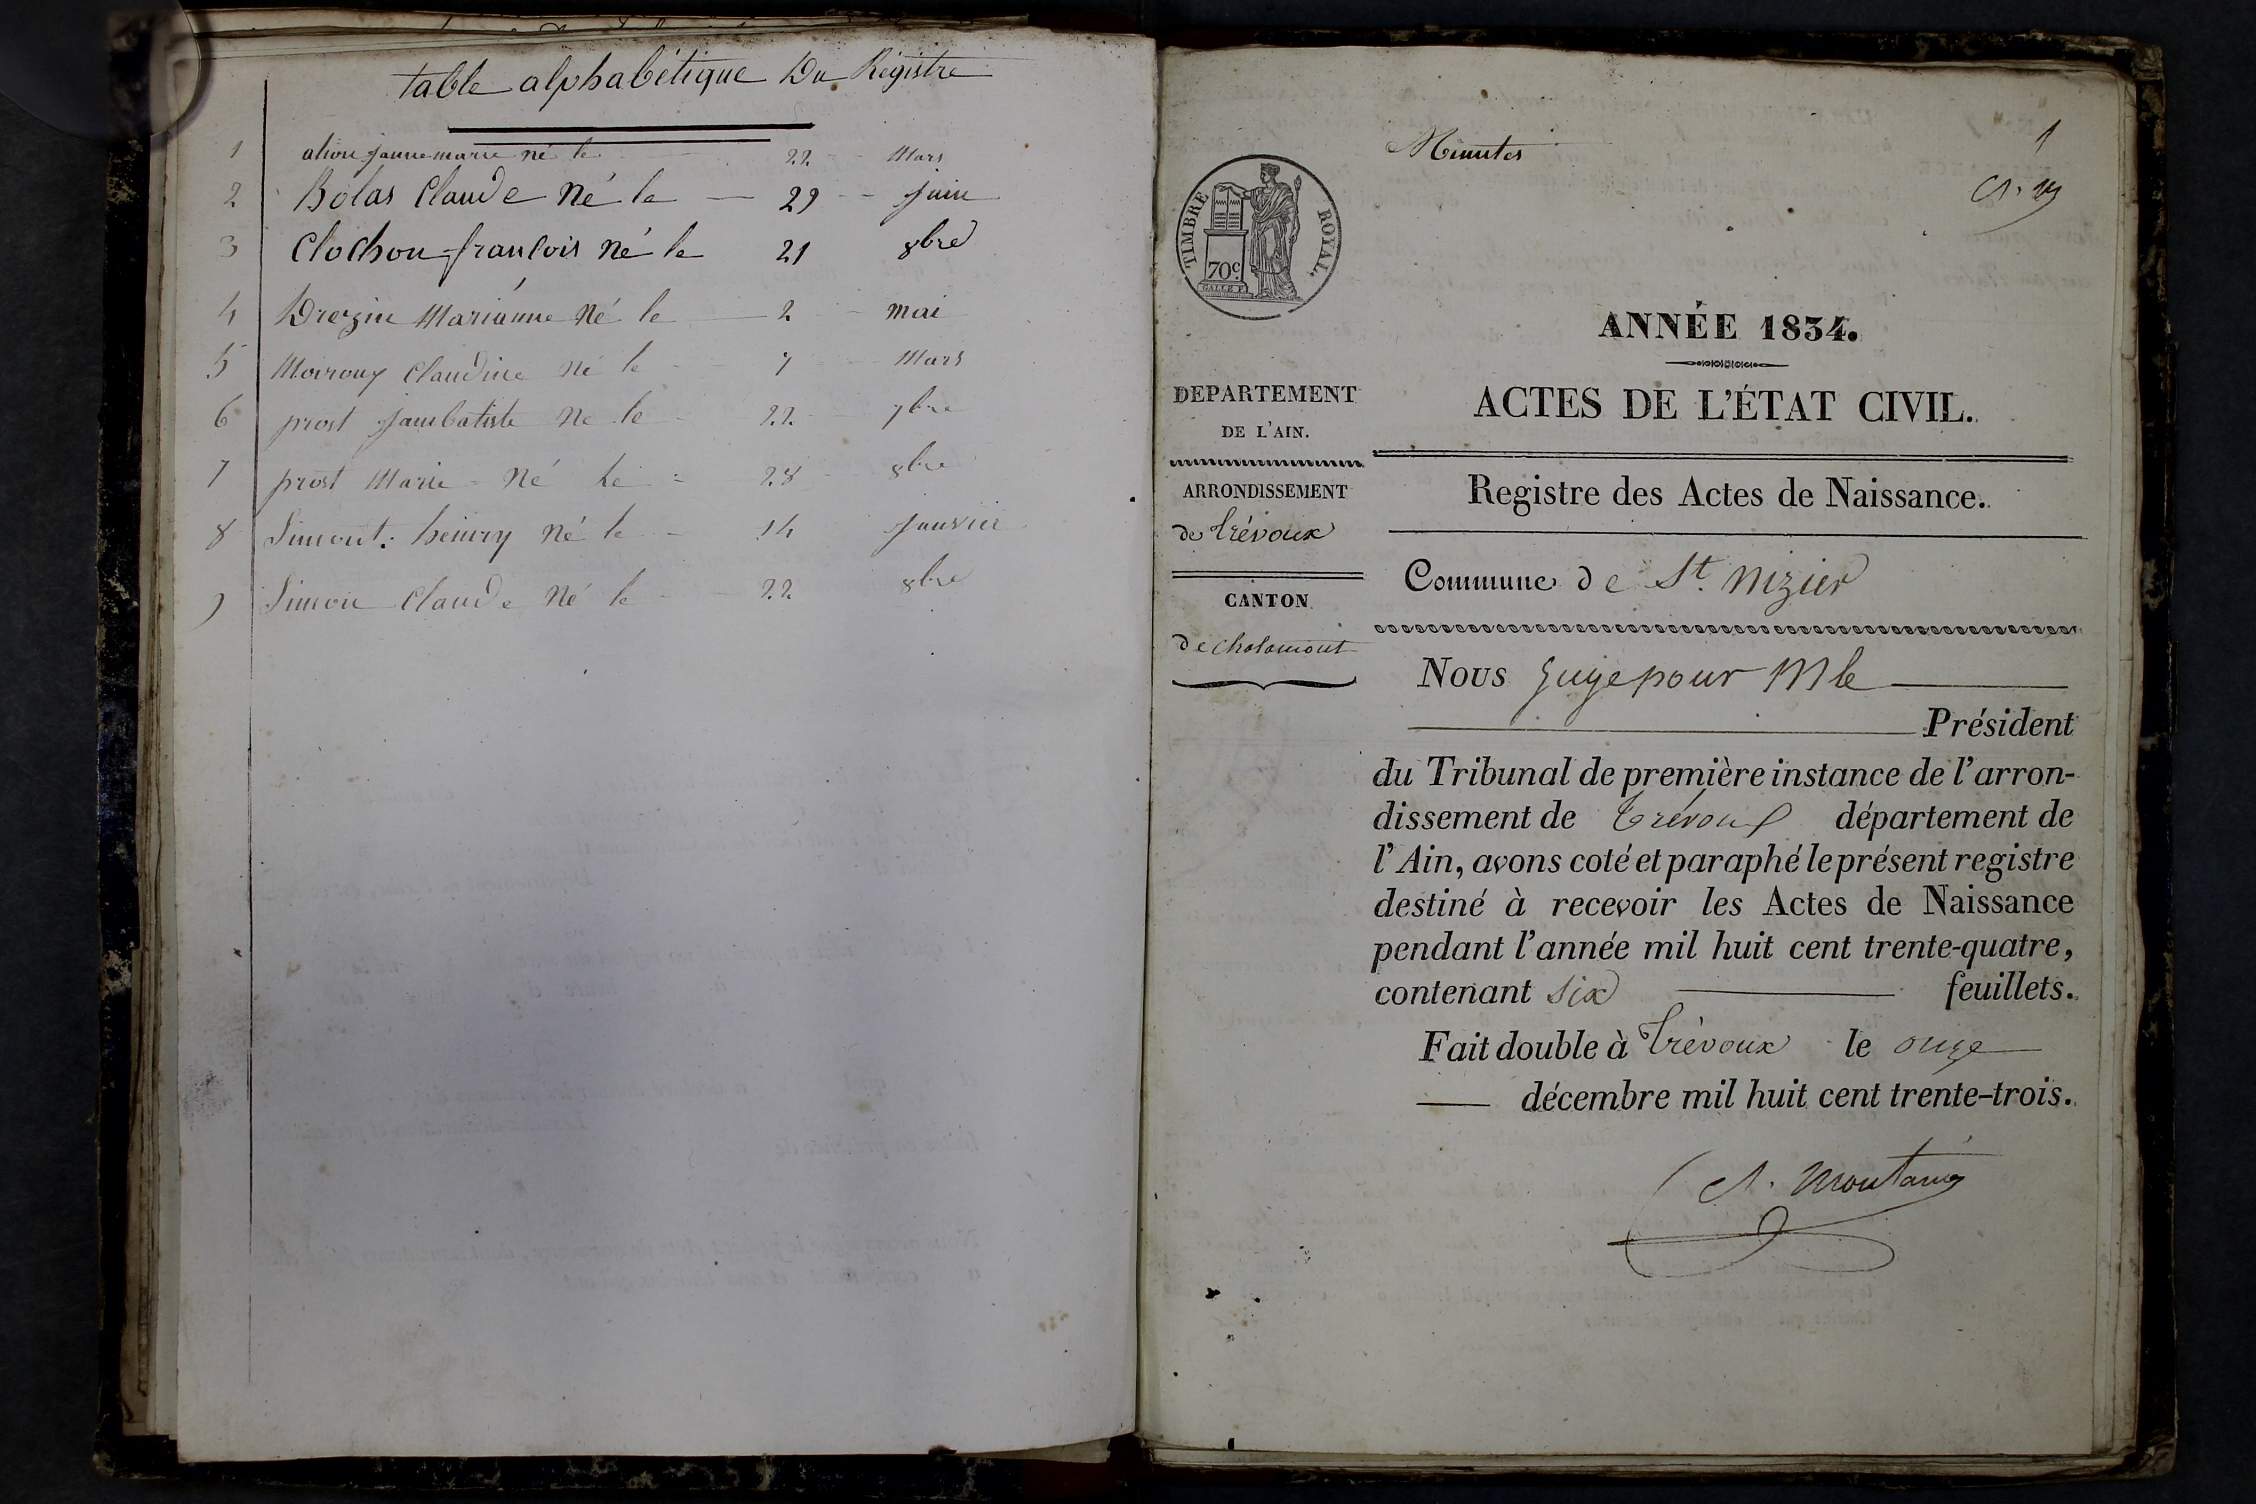 table alphabétique Du Registre
1 alion jeannemarie né le 22 Mars
2 Bolas Claude Né le 29 juin
3 Clochon francois Né le 21 8bre
4 Drezin Marianne Né le 2 mai
5 Moiroux Claudine Né le 7 Mars
6 prost jeanbatiste Né le 22 7bre
7 prost Marie Né le 28 8bre
8 Simont henry Né le 14 janvier
9 Simon Claude Né le 22 8bre
Minutes
1
TIMBRE ROYAL.
70c.
ANNÉE 1834.
DEPARTEMENT
DE L'AIN.
ACTES DE L'ÉTAT CIVIL.
ARRONDISSEMENT
de Trévoux
Registre des Actes de Naissance.
CANTON
de chalamont
Commune de St. Nizier
Nous Juge pour Mr le
Président
du Tribunal de première instance de l'arron-
dissement de Trévoux département de
l'Ain, avons coté et paraphé le présent registre
destiné à recevoir les Actes de Naissance
pendant l'année mil huit cent trente-quatre,
contenant six feuillets.
Fait double à Trévoux le onze
décembre mil huit cent trente-trois.